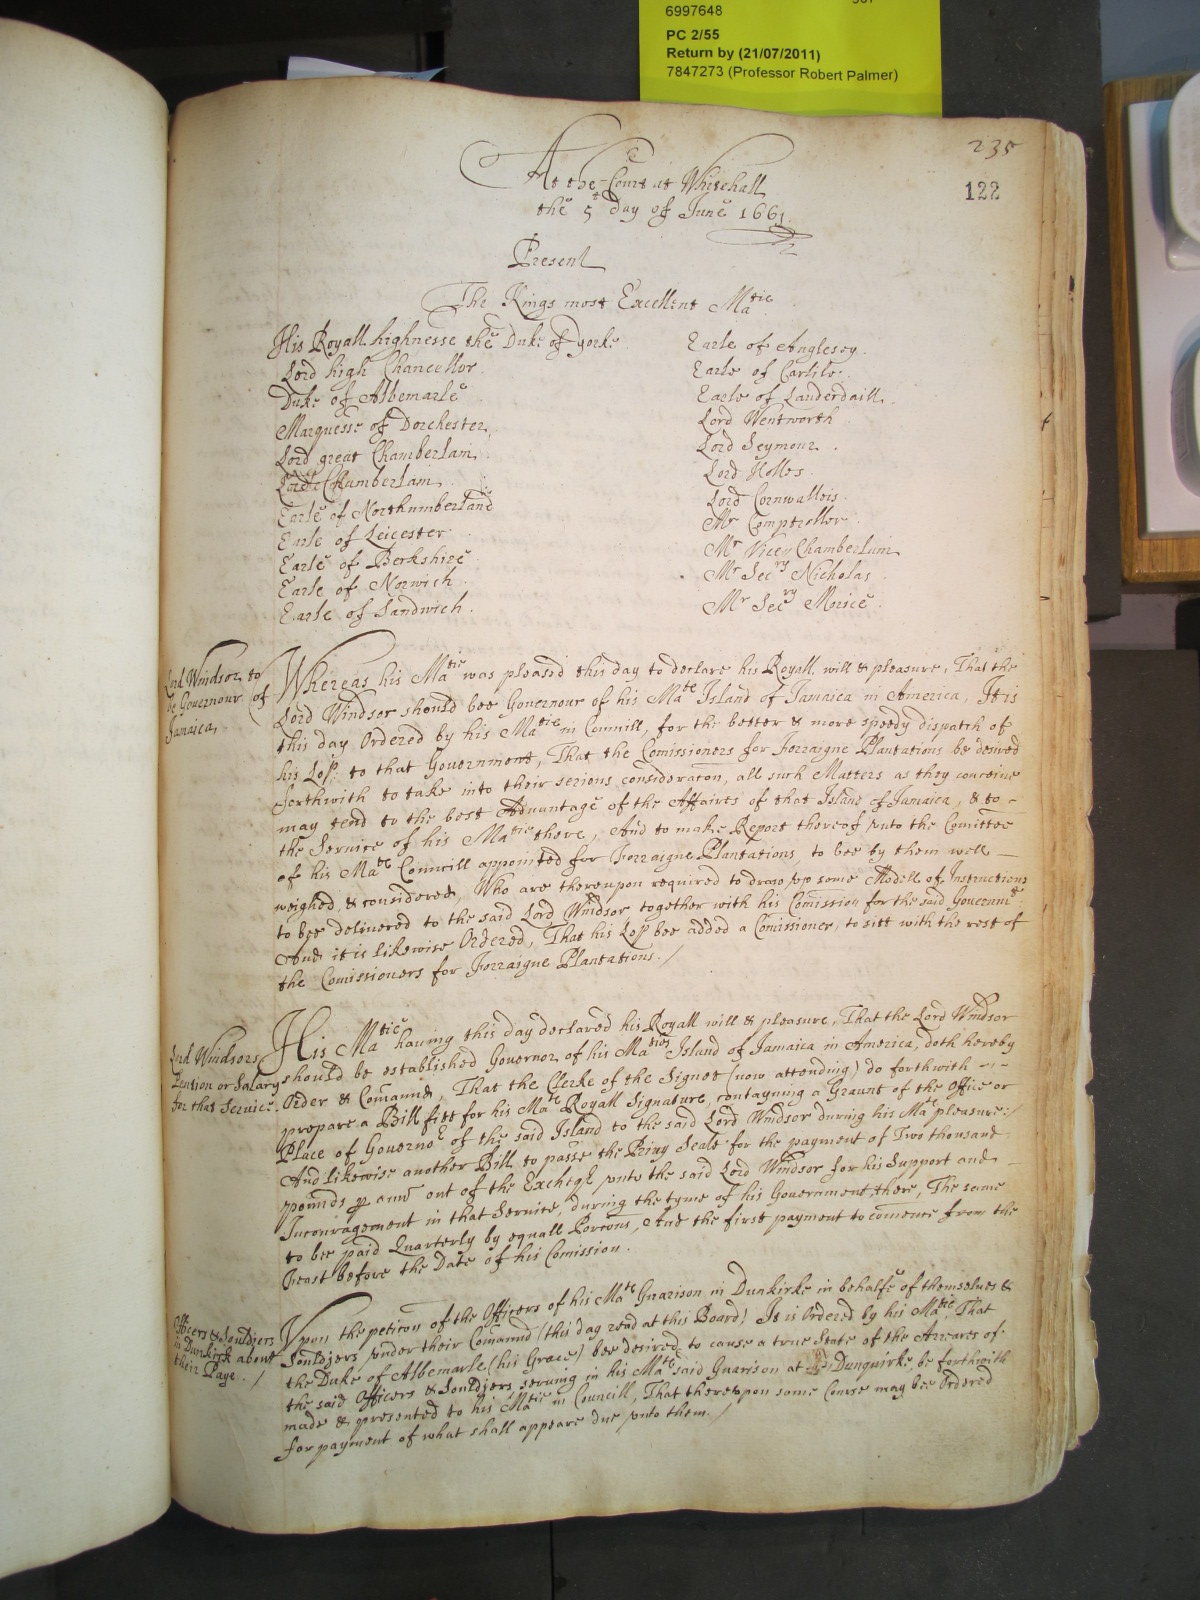 6997648
PC 2/55
Return by (21/07/2011)
7847273 (Professor Robert Palmer)
235
122
At the Court at Whitehall
the 5t day of June 1661.
Present
The Kings most Excellent Matie
His Royall highnesse the Duke of yorke
Lord high Chancellor.
Duke of Albemarle
Marquesse of Dorchester
Lord great Chamberlain
Lord Chamberlain
Earle of Northumberland
Earle of Leicester
Earle of Berkshire
Earle of Norwich
Earle of Sandwich.
Earle of Anglesey.
Earle of Carlile.
Earle of Lauderdaill.
Lord Wentworth
Lord Seymour.
Lord Holles.
Lord Cornwallis.
Mr Comptrollor.
Mr Vice Chamberlain
Mr Secry Nicholas
Mr Secry Morice
Lord Windsor to
be Governour of
Jamaica,
Whereas his Matie was pleased this day to declare his Royall will & pleasure, That the
Lord Windsor should bee Governour of his Mate Island of Jamaica in America, It is
this day Ordered by his Matie in Councill, for the better & more speedy dispatch of
his Lopp. to that Government, That the Comissioners for Forraigne Plantations be desired
forthwith to take into their serious consideracon, all such Matters as they conceive
may tend to the best Advantage of the Affaires of that Island of Jamaica, & to -
the Service of his Matie there, And to make Report thereof vnto the Comittee
of his Mates Councill appointed for Forraigne Plantations, to bee by them well -
weighed, & considered, Who are thereupon required to draw vp some Modell of Instructions
to bee delivered to the said Lord Windsor together with his Comission for the said Governmt.
And it is likewise Ordered, That his Lopp bee added a Comissioner, to sitt with the rest of
the Comissioners for Forraigne Plantations. /
Lord Windsors
Pention or Salary
for that Service.
His Matie having this day declared his Royall will & pleasure, That the Lord Windsor
should be established Governor of his Maties Island of Jamaica in America, doth hereby
Order & Comaund, That the Clerke of the Signet (now attending) do forthwith - -
prepare a Bill fitt for his Mates Royall Signature, contayning a Graunt of the Office or
Place of Governor of the said Island to the said Lord Windsor during his Mates pleasure:/
And likewise another Bill to passe the Privy Seale for the payment of Two thousand
pounds p ann out of the Excheqr vnto the said Lord Windsor for his Support and
Incouragement in that Service, during the tyme of his Government there, The same
to bee paid Quarterly by equall Porcons, And the first payment to comence from the
Feast before the Date of his Comission.
Officers & Souldjers
in Dunkirk about
their Paye. /
Vpon the peticon of the Officers of his Mates Guarison in Dunkirke in behalfe of themselues &
Souldjers vnder their Comaund (this day read at this Board) It is Ordered by his Matie, That
the Duke of Albemarle (his Grace) bee desired to cause a true State of the Arreares of
the said Officers & Souldjers, serving in his Mates said Guarison at Dunquirke be forthwith
made & presented to his Matie in Councill, That therevpon some Course may bee Ordered
for payment of what shall appeare due vnto them. /